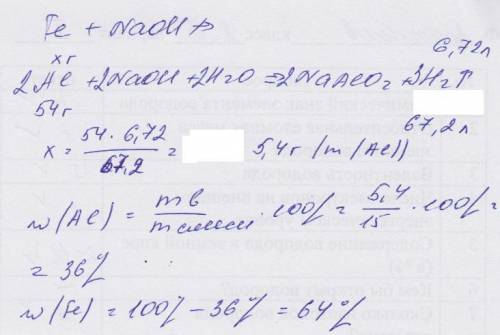 Fe + NaOH ↛
xг 6,72л
2Al + 2NaOH + 2H2O = 2NaAlO2 + 3H2↑
54г 67,2л
x = 54·6,72 / 67,2 = 5,4г (m(Al))
w(Al) = mв / mсмеси · 100% = 5,4 / 15 · 100% =
= 36%
w(Fe) = 100% - 36% = 64%